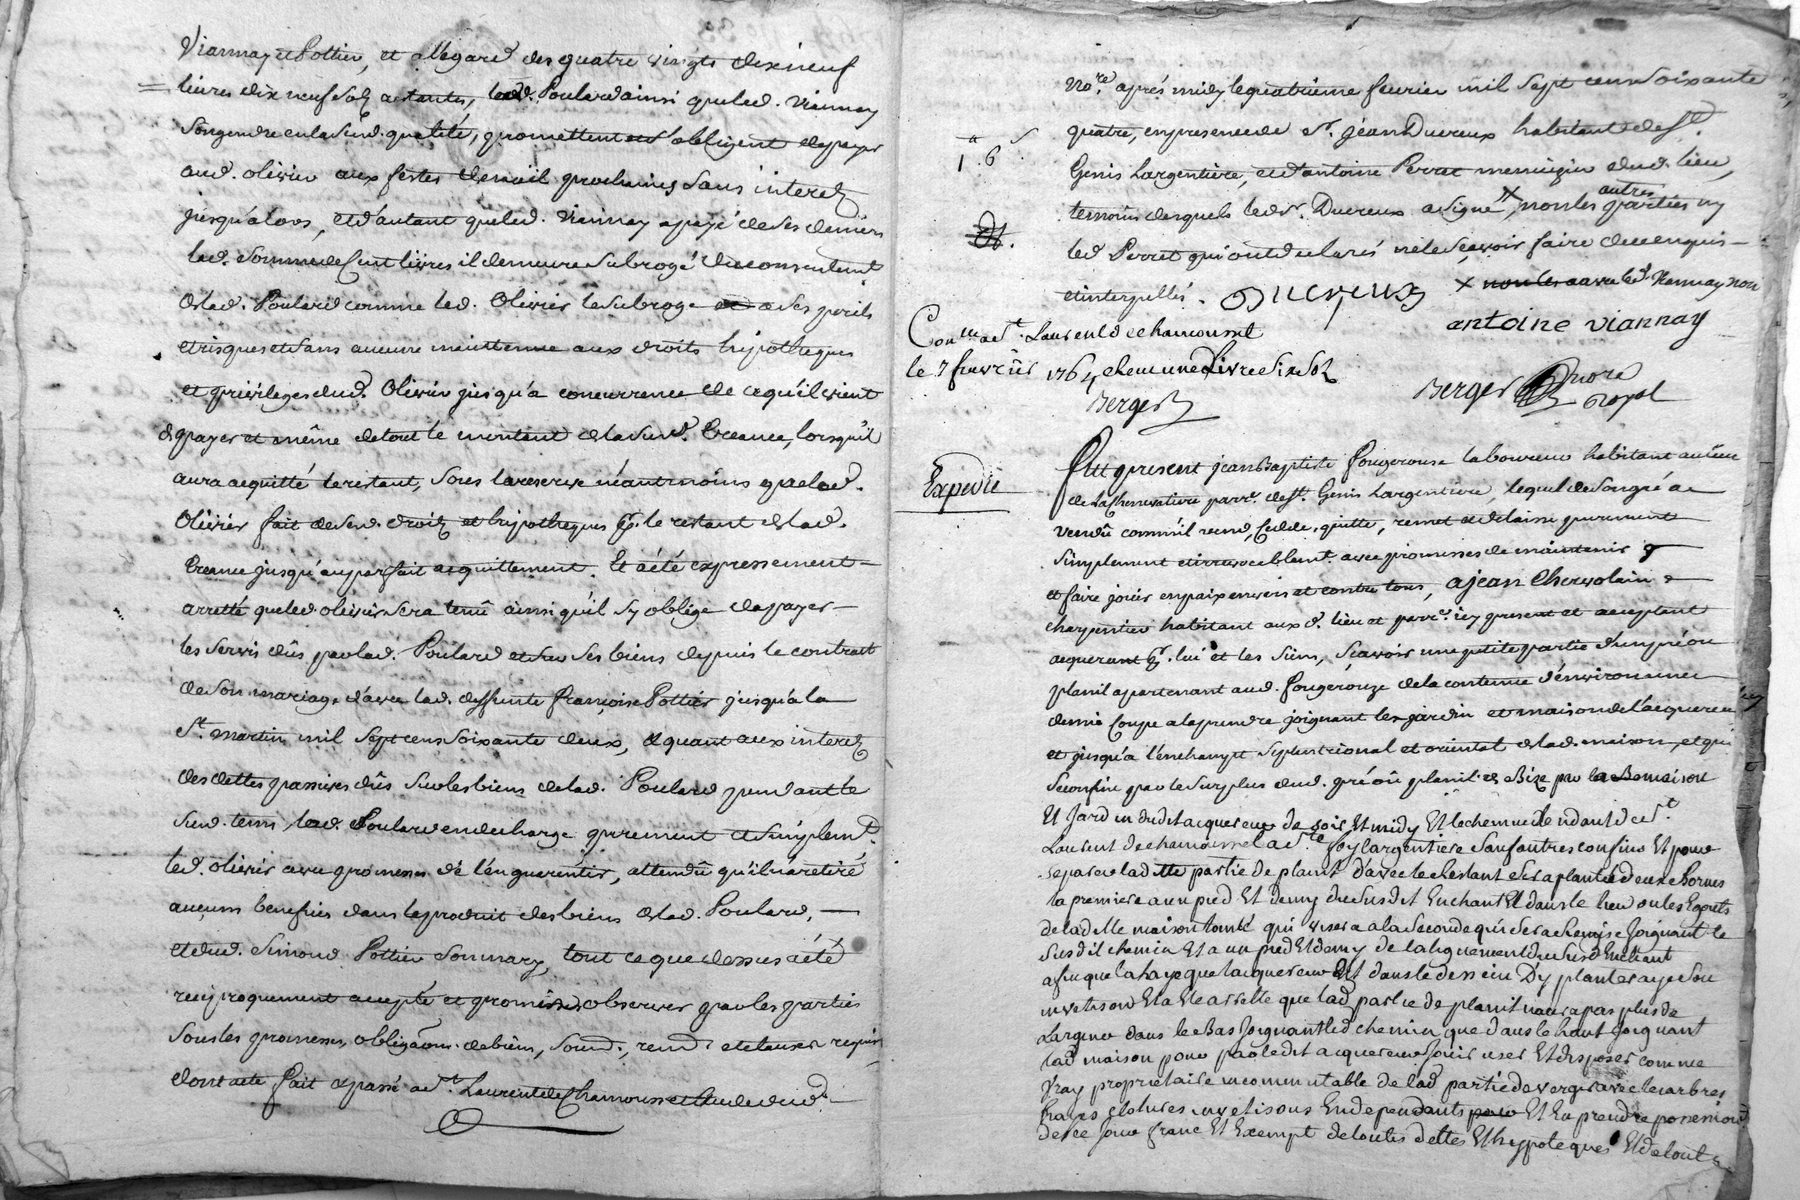 Viannay et Pottier, et a l'egard des quatre vingts dix neuf
livres dix neuf sols restantes, led. Poulard ainsi que led. Viannay
son gendre en lad. qualité, promettent et s'obligent de payer
aud. olivier aux fêtes de noël prochaines sans interet
jusqu'alors, et d'autant que led. Viannay a payé de ses deniers
lad. somme de Cent livres il demeure subrogé du consentemt
dud. Poulard comme led. Olivier le subroge a ses perils
et risques et sans aucune maintenue aux droits hypotheques
et privileges dud. Olivier jusqu'a concurrence de ce qu'il vient
de payer et même de tout le montant de la susd. Creance, lorsqu'il
aura acquitté le restant, sous la reserve néantmoins que led.
Olivier fait de sesd. droits et hypotheques pr. le restant de lad.
Creance jusqu'au parfait acquittement. Et a été expressement
arretté que led. olivier sera tenû ainsi qu'il s'y oblige de payer
les servis dûs par led. Poulard et sur ses biens depuis le contrat
de son mariage d'avec lad. deffunte françoise Pottier jusqu'a la
St. martin mil sept cens soixante deux, et quant aux interets
des dettes passives dûs sur les biens dud. Poulard pendant le
susd. tems, led. Poulard en decharge purement et simplemt.
led. olivier avec promesse de l'en guarentir, attendû qu'il n'a retiré
aucuns benefices dans le produit des biens dud. Poulard,
et dud. Simond Pottier sommary, tout ce que dessus a été
reciproquement accepté et promis d'observer par les parties
sous les promesses, obligãons. de biens, soum., renon. et clauses requises
dont acte fait et passé a St. Laurent de Chamousset etude dud.
nore. après midy le quatrième fevrier mil sept cens soixante
quatre, en presence de Sr. jean Ducreux habitant de St.
1. 6
Genis Largentière, et d'antoine Perret menuizier dud. lieu,
autres
temoins desquels led. Sr. Ducreux a signé, x non les parties ny
led. Perret qui ont declarés ne le sçavoir faire de ce enquis
x led. Viannay non
et interpellés. Ducreux
antoine viannay
Con.lé a St. Laurent de chamousset
le 7 fevrier 1764 reçu une Livre six sols
Berger
Berger nore royal
Expedié
Fut present jean Baptiste fougerouse laboureur habitant au lieu
de La parr. de St. Genis Largentière, lequel de son gré a
vendû comm'il vend, Cedde, quitte, remet et delaisse purement
simplement et irrevocablemt. avec promesses de maintenir
et faire jouir en paix envers et contre tous, a jean
charpentier habitant aux d. lieu et parr. icy present et acceptant
acquerant pr. lui et les siens, sçavoir une petite partie d'un pré ou
planil apartenant aud. fougerouze de la contenue d'environ une
demie Coupe a la prendre joignant les jardin et maison de l'acquereur
et jusqu'a l'enchampt septentrional et oriental de lad. maison, et qui
se confine par le surplus dud. pré ou planil de Bize par la maison
Et Jardin dudit acquereur de soir Et midy Et le chemin tendant de St.
Laurent de chamousset a Ste. foy largentiere sauf autres confins Et pour
separer ladite partie de planil d'avec le Restant sera planté deux Bornes
la premiere a un pied Et demy du susdit Enchant Et dans le lieu ou les Egouts
de ladite maison tombe qui visera a la seconde qui sera joignant le
susdit chemin Et a un pied Et demy de l'alignement du susd. Enchant
afin que la haye que lacquereur Est dans le dessein D'y planter aye son
invetison Et a Eté arretté que lad. partie de planil n'aura pas plus de
Largeur dans le Bas Joignant led. chemin que dans le haut Joignant
lad. maison pour par ledit acquereur Jouir user Et disposer comme
Vray proprietaire incommutable de lad. partie de verger avec les arbres
hayes clotures invetisons En dependants Et En prendre possession
de ce Jour franc Et Exempt de toutes dettes Et hypoteques Et de tout